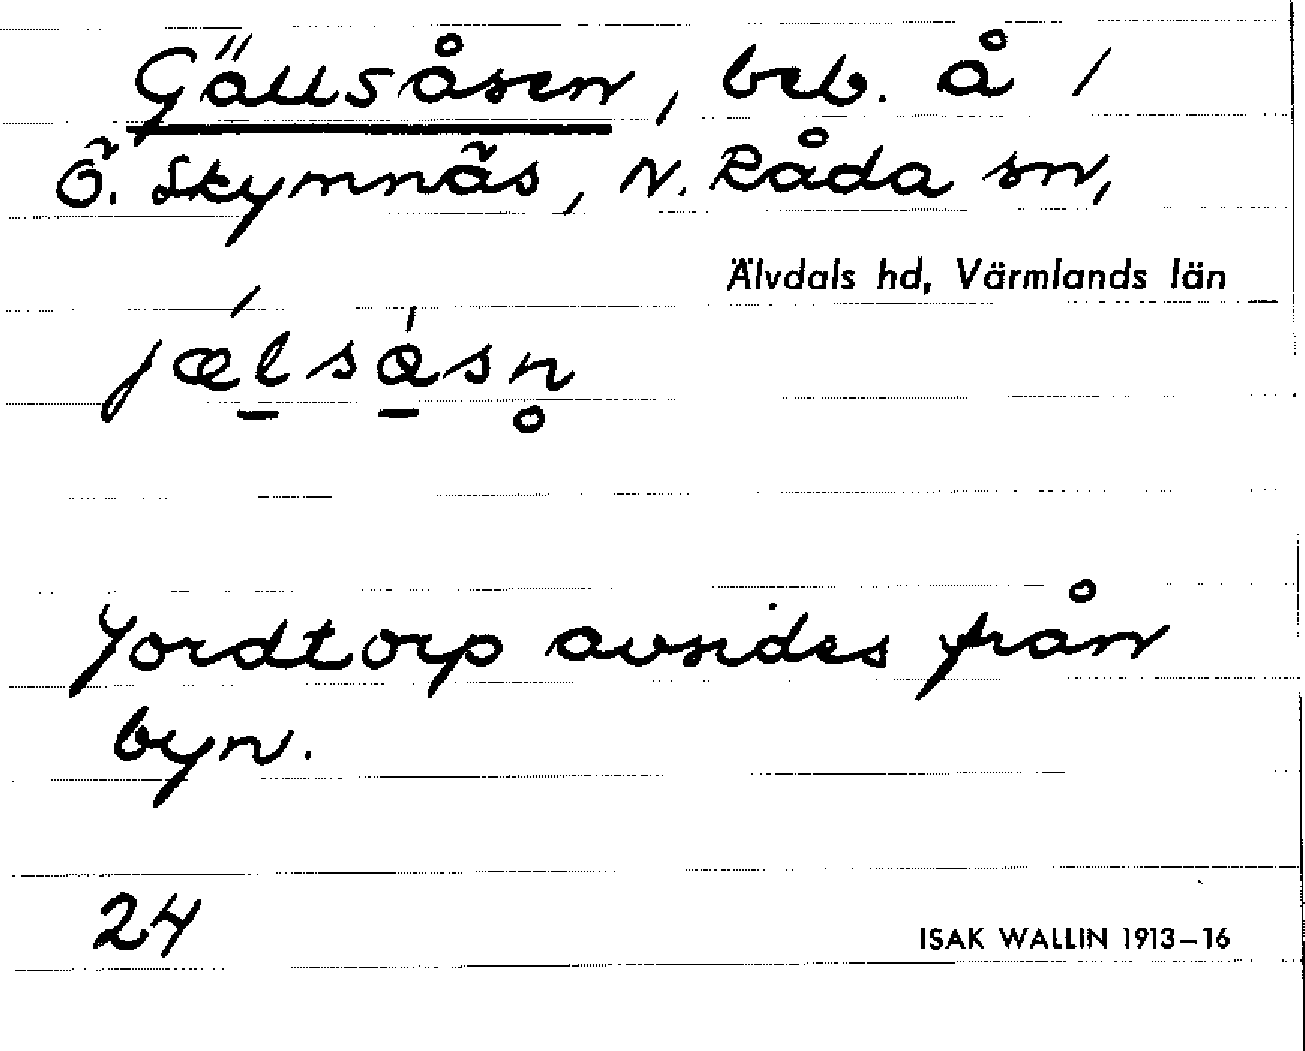 Gällsåsen, beb. å /
Ö. Skymnäs, N. Råda sn,
Älvdals hd, Värmlands län
jǽ̱lsǻ̱sn̥
Jordtorp avsides från
byn.
24
ISAK WALLIN 1913–16